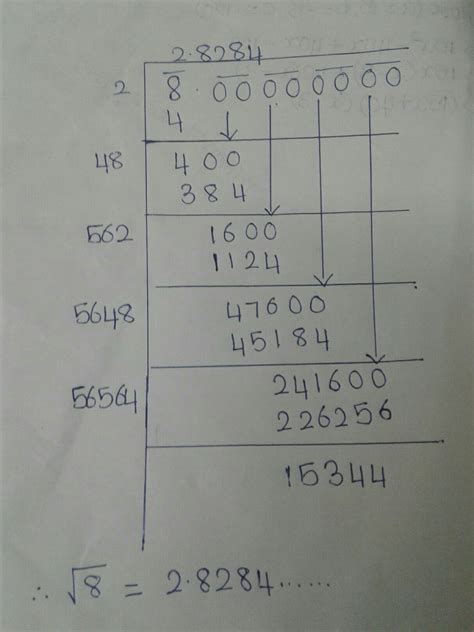 2.8284
2 8.00 00 00 00
4
48 400
384
562 1600
1124
5648 47600
45184
56564 241600
226256
15344
∴ √8 = 2.8284......